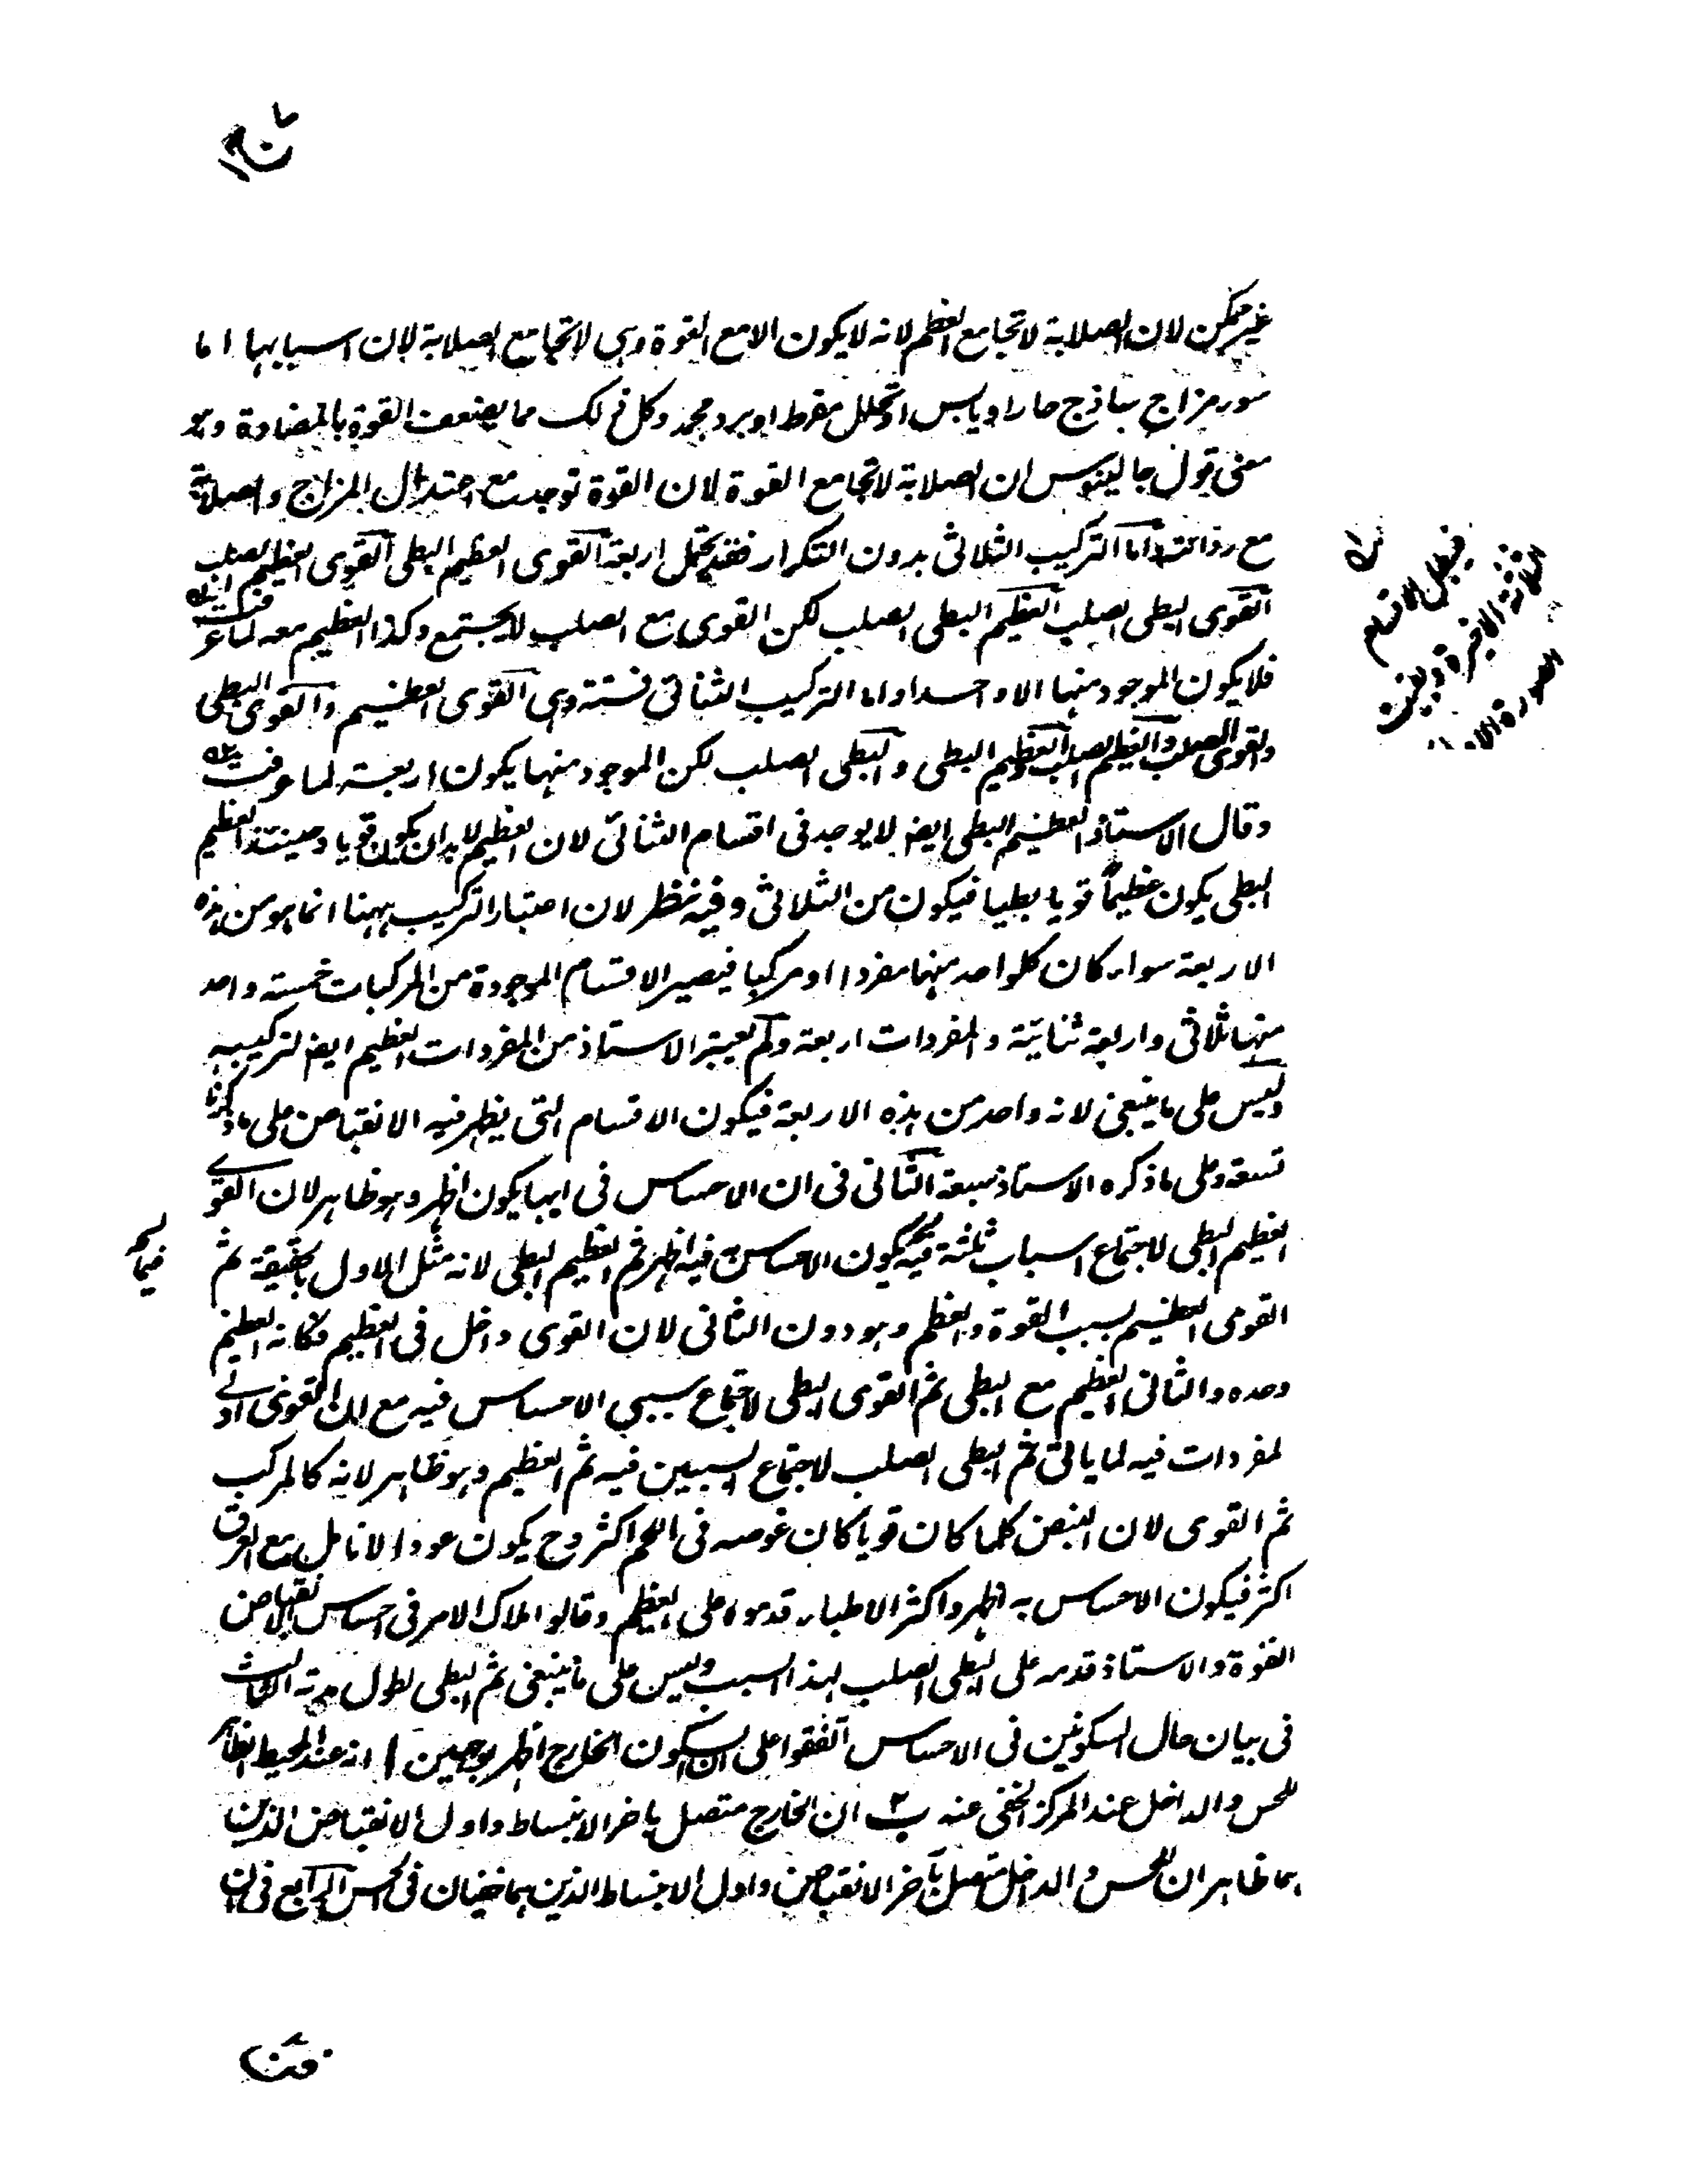 غير ممكن لان الصلابة لا تجامع العظم لانه لا يكون الا مع القوة وهى لا تجامع الصلابة لان اسبابها اما
سوء مزاج ساذج حار او يابس او تحلل مفرط او برد مجمد وكل ذلك مما يضعف القوة بالمضادة وهو
معنى قول جالينوس ان الصلابة لا تجامع القوة لان القوة توجد مع اعتدال المزاج والصلابة
مع رداءته واما التركيب الثلاثى بدون التكرار فقد يحتمل اربعة القوى العظيم البطى القوى العظيم الصلب
القوى البطى الصلب العظيم البطى الصلب لكن القوى مع الصلب لا يجتمع وكذا العظيم معه لما عرفت
فلا يكون الموجود منها الا واحدا واما التركيب الثنائى فستة وهى القوى العظيم والقوى البطى
والقوى الصلب والعظيم الصلب والعظيم البطى والبطى الصلب لكن الموجود منها يكون اربعة لما عرفت
وقال الاستاذ العظيم البطى ايضا لا يوجد فى اقسام الثنائى لان العظيم لا بد ان يكون قويا وحينئذ العظيم
البطى يكون عظيما قويا بطيا فيكون من الثلاثى وفيه نظر لان اعتبار التركيب ههنا انما هو من هذه
الاربعة سواء كان كل واحد منها مفردا او مركبا فيصير الاقسام الموجودة من المركبات خمسة واحد
منها ثلاثى واربعة ثنائية والمفردات اربعة ولم يعتبر الاستاذ من المفردات العظيم ايضا لتركيبه
وليس على ما ينبغى لانه واحد من هذه الاربعة فيكون الاقسام التى يظهر فيه الانقباض على ما ذكرنا
تسعة وعلى ما ذكره الاستاذ سبعة الثانى فى ان الاحساس فى ايها يكون اظهر وهو ظاهر لان القوى
العظيم البطى لاجتماع اسباب ثلثة فيه يكون الاحساس فيه اظهر ثم العظيم البطى لانه مثل الاول بالحقيقة ثم
القوى العظيم بسبب القوة والعظم وهو دون الثانى لان القوى داخل فى العظيم فكانه العظيم
وحده والثانى العظيم مع البطى ثم القوى البطى لاجتماع سببى الاحساس فيه مع ان القوى ادنى
لمفردات فيه لما ياتى ثم البطى الصلب لاجتماع السببين فيه ثم العظيم وهو ظاهر لانه كالمركب
ثم القوى لان النبض كلما كان قويا كان غوصه فى اللحم اكثر وح يكون عود الانامل مع العرق
اكثر فيكون الاحساس به اظهر واكثر الاطباء قدموه على العظيم وقالوا ملاك الامر فى احساس الانقباض
القوة والاستاذ قدمه على البطى الصلب لهذا السبب وليس على ما ينبغى ثم البطى لطول مدته الثالث
فى بيان حال السكونين فى الاحساس اتفقوا على ان السكون الخارج اظهر بوجهين ا انه عند المحيط الظاهر
للحس والداخل عند المركز الخفى عنه ب ان الخارج متصل باخر الانبساط واول الانقباض الذين
هما ظاهران للحس والداخل متصل بآخر الانقباض واول الانبساط الذين هما خفيان فى الحس الرابع فى ان